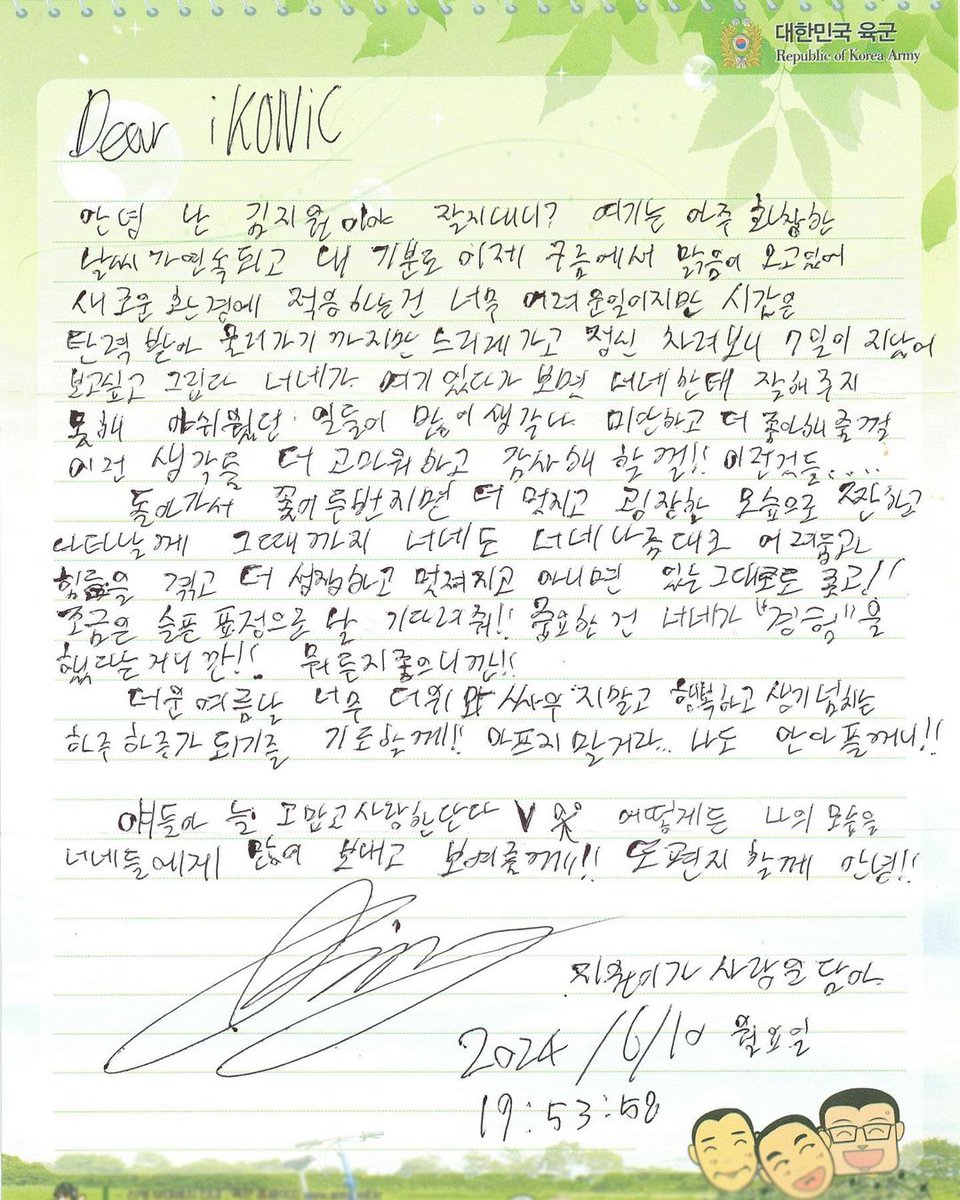 대한민국 육군
Republic of Korea Army
Dear iKONIC
안녕 난 김지원이야 잘지내니? 여기는 아주 화창한
날씨가 연속되고 내 기분도 이제 구름에서 맑음이 오고있어
새로운 환경에 적응하는건 너무 어려운일이지만 시간은
탄력 받아 굴러가기 까지만 느리게 가고 정신 차려보니 7일이 지났어
보고싶고 그립다 너네가 여기 있다가 보면 너네한태 잘해주지
못해 아쉬웠던 일들이 많이 생각나 미안하고 더 좋아해줄껄
이런 생각들 더 고마워하고 감사해 할껄!! 이런것들.....
돌아가서 꽃이 두번지면 더 멋지고 굉장한 모습으로 짠하고
나타날께 그때까지 너네도 너네 나름대로 어려움과
힘듦을 겪고 더 성장하고 멋져지고 아니면 있는그대로도 좋고!!
조금은 슬픈 표정으로 날 기다려줘!! 중요한 건 너네가 "경험"을
했다는거니깐!! 뭐든지좋으니깐!!
더운여름날 너무 더위와 싸우지말고 행복하고 생기넘치는
하루하루가 되기를 기도할께!! 아프지말거라.. 나도 안아플꺼니!!
얘들아 늘 고맙고사랑한단다 어떻게든 나의 모습을
너네들에게 많이 보내고 보여줄께!!! 또편지할께 안녕!!
지원이가 사랑을 담아
2024/6/10 월요일
19:53:58